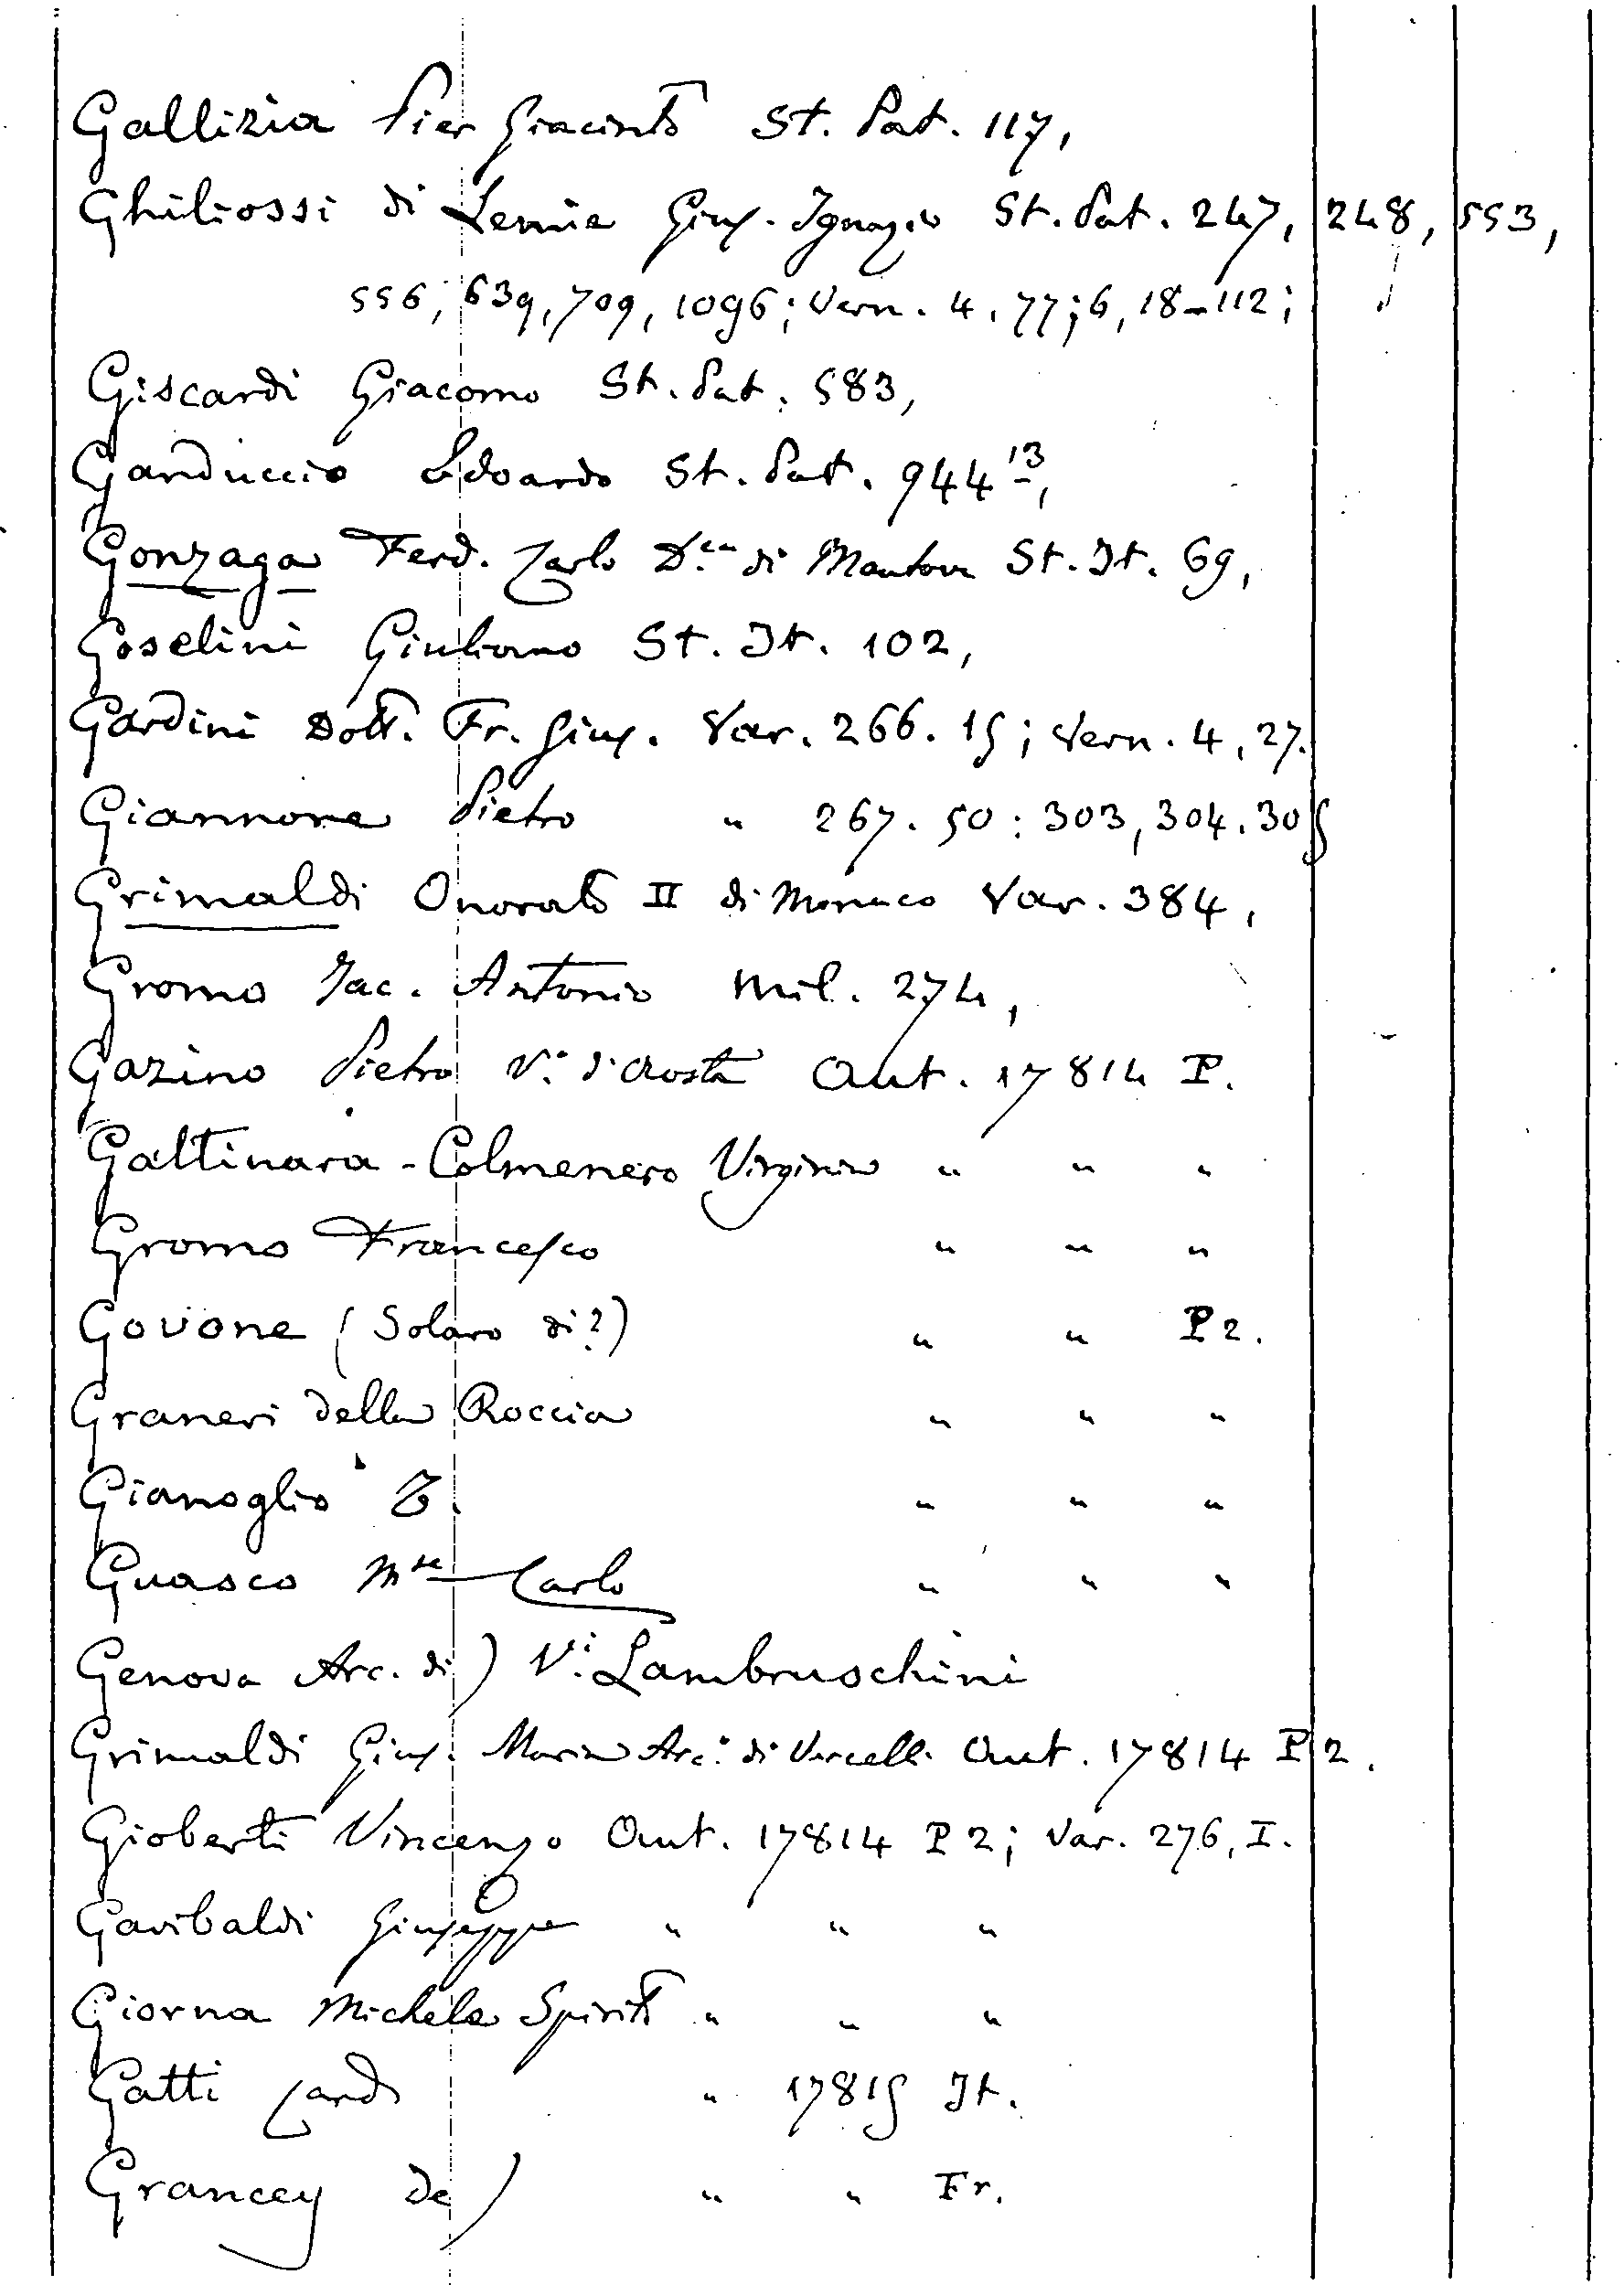 Gallizia Pier Giacinto St. Pat. 117,
Ghiliossi di Lemie Gius. Ignazio St. Pat. 247, 248, 553,
556, 639, 709, 1096; Vern. 4, 77; 6, 18-112;
Giscardi Giacomo St. Pat. 583,
Garduccio Edoardo St. Pat. 944 13,
Gonzaga Ferd. Carlo D.ca di Mantova St. It. 69,
Goselini Giuliano St. It. 102,
Gardini Dott. Fr. Gius. Var. 266. 15; Vern. 4, 27.
Giannone Pietro " 267. 50: 303, 304. 305
Grimaldi Onorato II di Monaco Var. 384,
Gromo Jac. Antonio Mil. 274,
Gazino Pietro V.o d'Aosta Aut. 17814 P.
Gattinara-Colmenero Virginia " " "
Gromo Francesco " " "
Govone (Solaro di?) " " P 2.
Graneri della Roccia " " "
Gianoglio " " "
Guasco Mse Carlo " " "
Genova Arc. di) V.i Lambruschini
Grimaldi Gius. Maria Arc.o di Vercelli Aut. 17814 P 2.
Gioberti Vincenzo Aut. 17814 P 2; Var. 276, I.
Garibaldi Giuseppe " " "
Giorna Michele Spirito " " "
Gatti Card " 17815 It.
Grancey de) " " Fr.